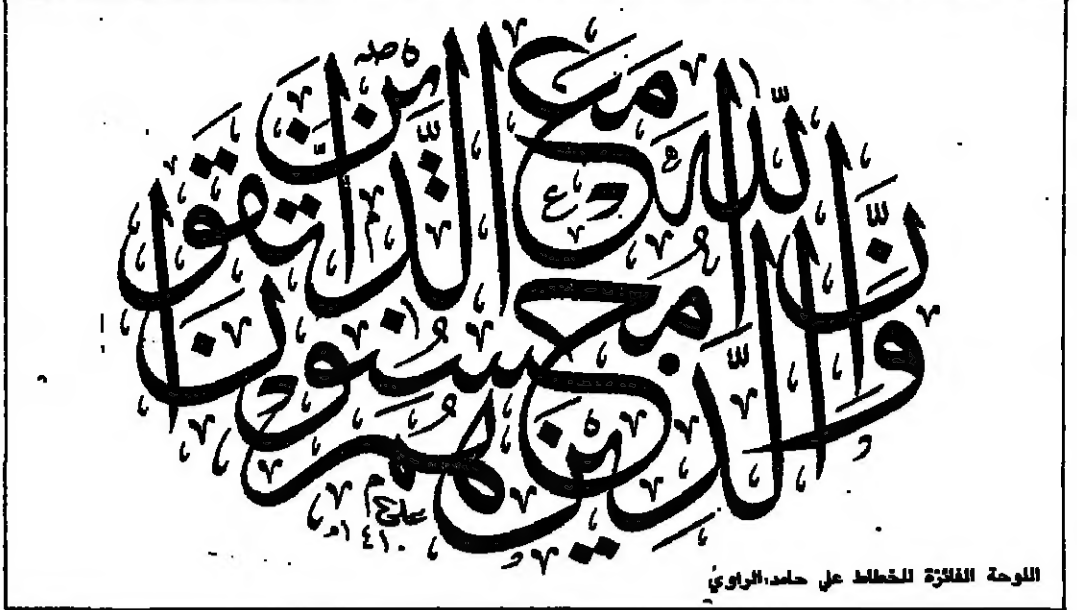 إِنَّ اللَّهَ مَعَ الَّذِينَ اتَّقَوا وَّالَّذِينَ هُم مُّحْسِنُونَ
علي
١٤١٠ﻫ
اللوحة الفائزة للخطاط علي حامد الراوي